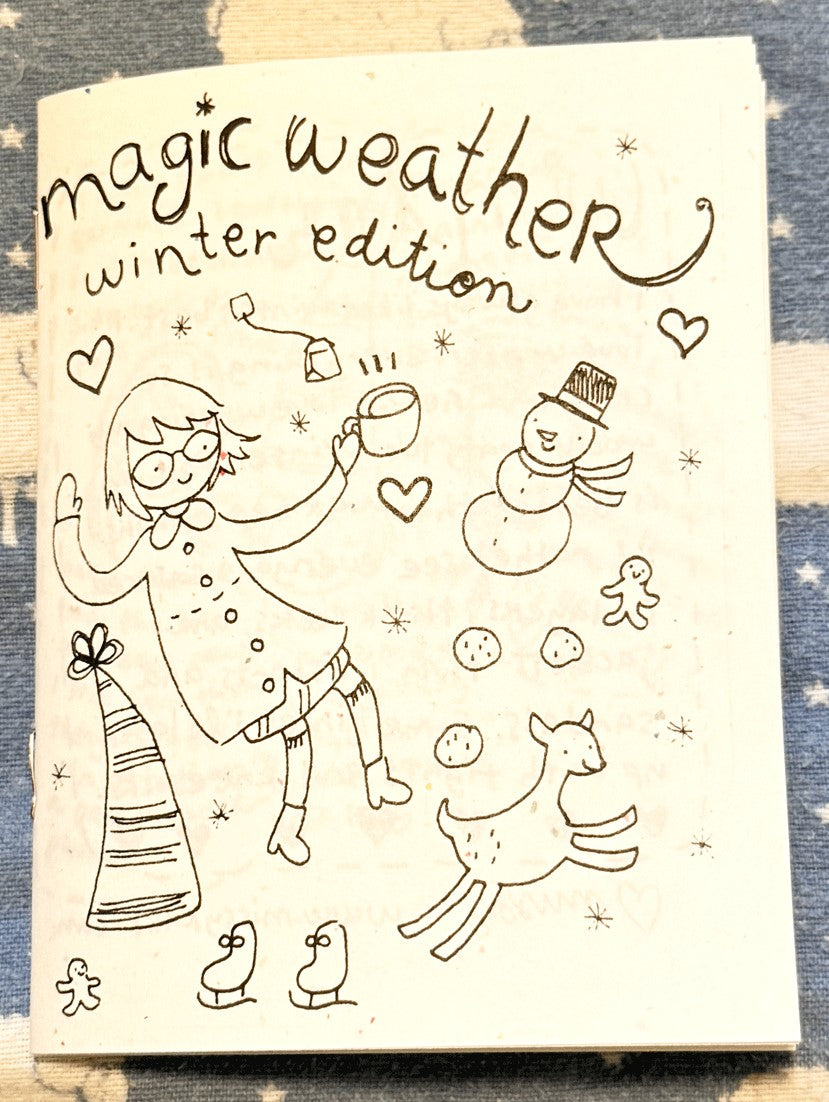 magic weather
winter edition